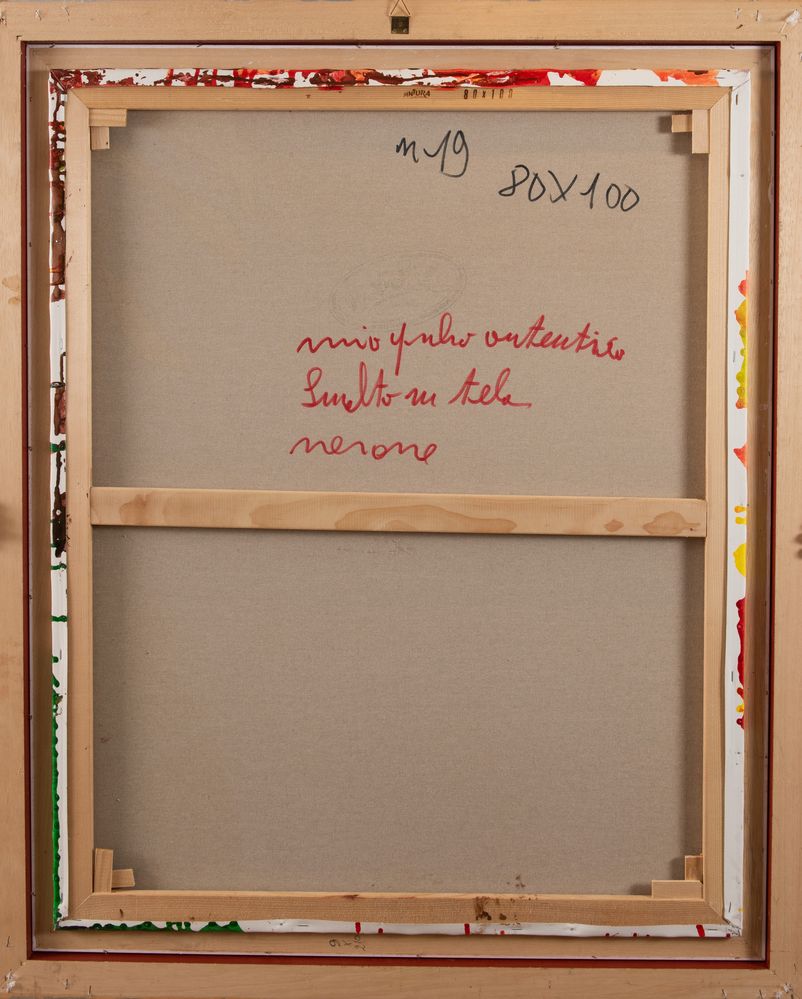 80x100
n 19
80X100
mio quadro autentico
Smalto su tela
nerone